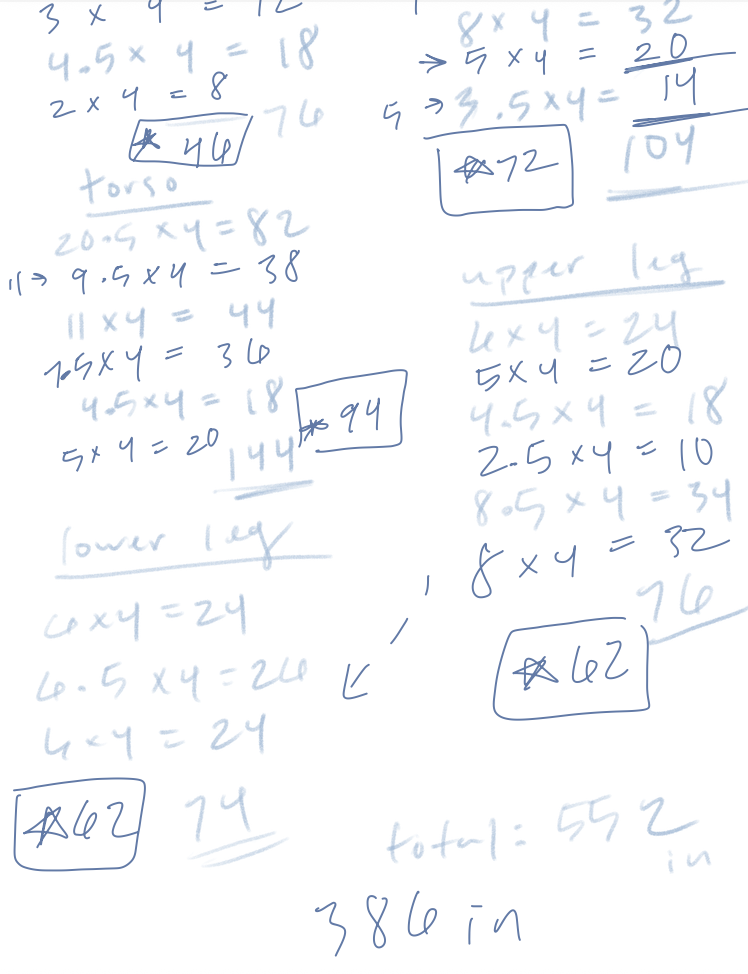 3 x 4 = 12
4.5 x 4 = 18
2 x 4 = 8
76
* 46
torso
20.5 x 4 = 82
11 → 9.5 x 4 = 38
11 x 4 = 44
7.5 x 4 = 36
4.5 x 4 = 18
* 94
5 x 4 = 20
144
lower leg
6 x 4 = 24
6.5 x 4 = 26
6 x 4 = 24
* 62
74
8 x 4 = 32
→ 5 x 4 = 20
5 → 3.5 x 4 = 14
* 72
104
upper leg
6 x 4 = 24
5 x 4 = 20
4.5 x 4 = 18
2.5 x 4 = 10
8.5 x 4 = 34
8 x 4 = 32
76
* 62
total: 552
in
386 in